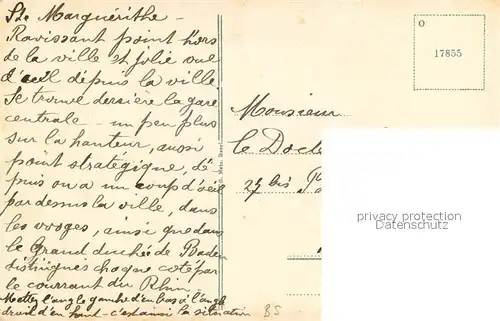 Ste Marguérithe -
Ravissant point hors
de la ville et jolie vue
d'œil dépuis la ville.
Se trouve derrière la gare
centrale - un peu plus
sur la hauteur, aussi
point stratégique, dé
puis on a un coup d'œil
par dessus la ville, dans
les vosges, ainsi que dans
le Grand duché de Baden
distingues chaque coté par
le courrant du Rhin.
Mettez l'angle gauche d'en bas à l'angle
droit d'en haut - c'est ainsi la situation
85
O
17855
Monsieur
le Docte
27 bis
privacy protection
Datenschutz